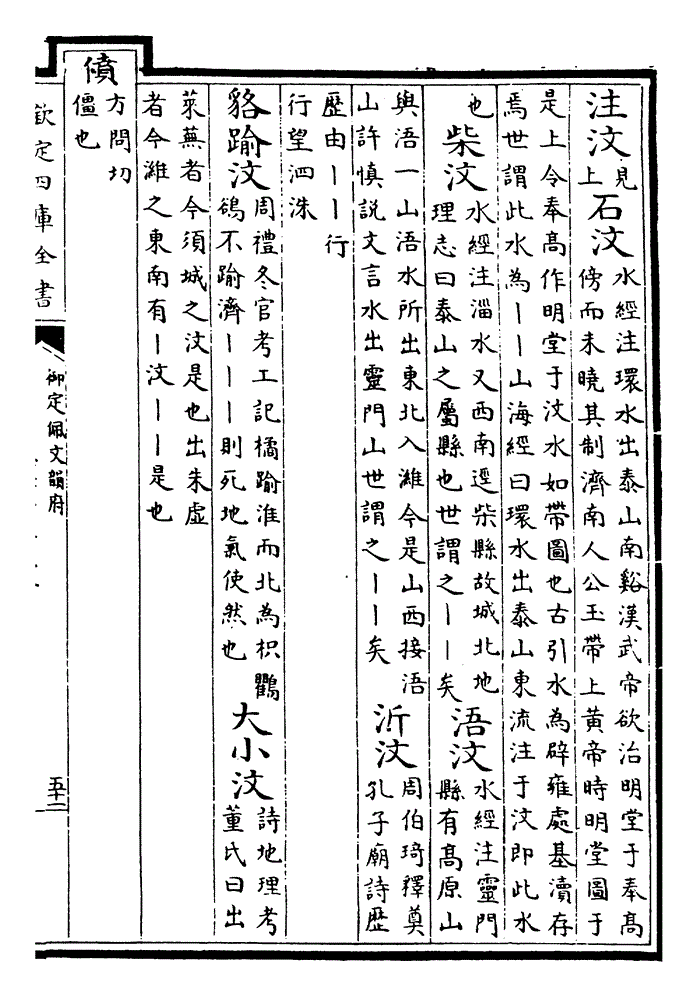 注汶 見
上
石汶 水經注環水出泰山南谿漢武帝欲治明堂于奉髙
傍而未曉其制濟南人公玉帶上黄帝時明堂圖于
是上令奉髙作明堂于汶水如帶圖也古引水為辟雍處基瀆存
焉世謂此水為丨丨山海經曰環水出泰山東流注于汶即此水
也
柴汶 水經注淄水又西南逕柴縣故城北地
理志曰泰山之屬縣也世謂之丨丨矣
浯汶 水經注靈門
縣有髙原山
與浯一山浯水所出東北入濰今是山西接浯
山許慎説文言水出靈門山世謂之丨丨矣
沂汶 周伯琦釋奠
孔子廟詩歴
歴由丨丨行
行望泗洙
貉踰汶 周禮冬官考工記橘踰淮而北為枳鸜
鵒不踰濟丨丨丨則死地氣使然也
大小汶 詩地理考
董氏曰出
萊蕪者今須城之汶是也出朱虚
者今濰之東南有丨汶丨丨是也
僨 方問切
僵也
欽定四庫全書
御定佩文韻府
五十二